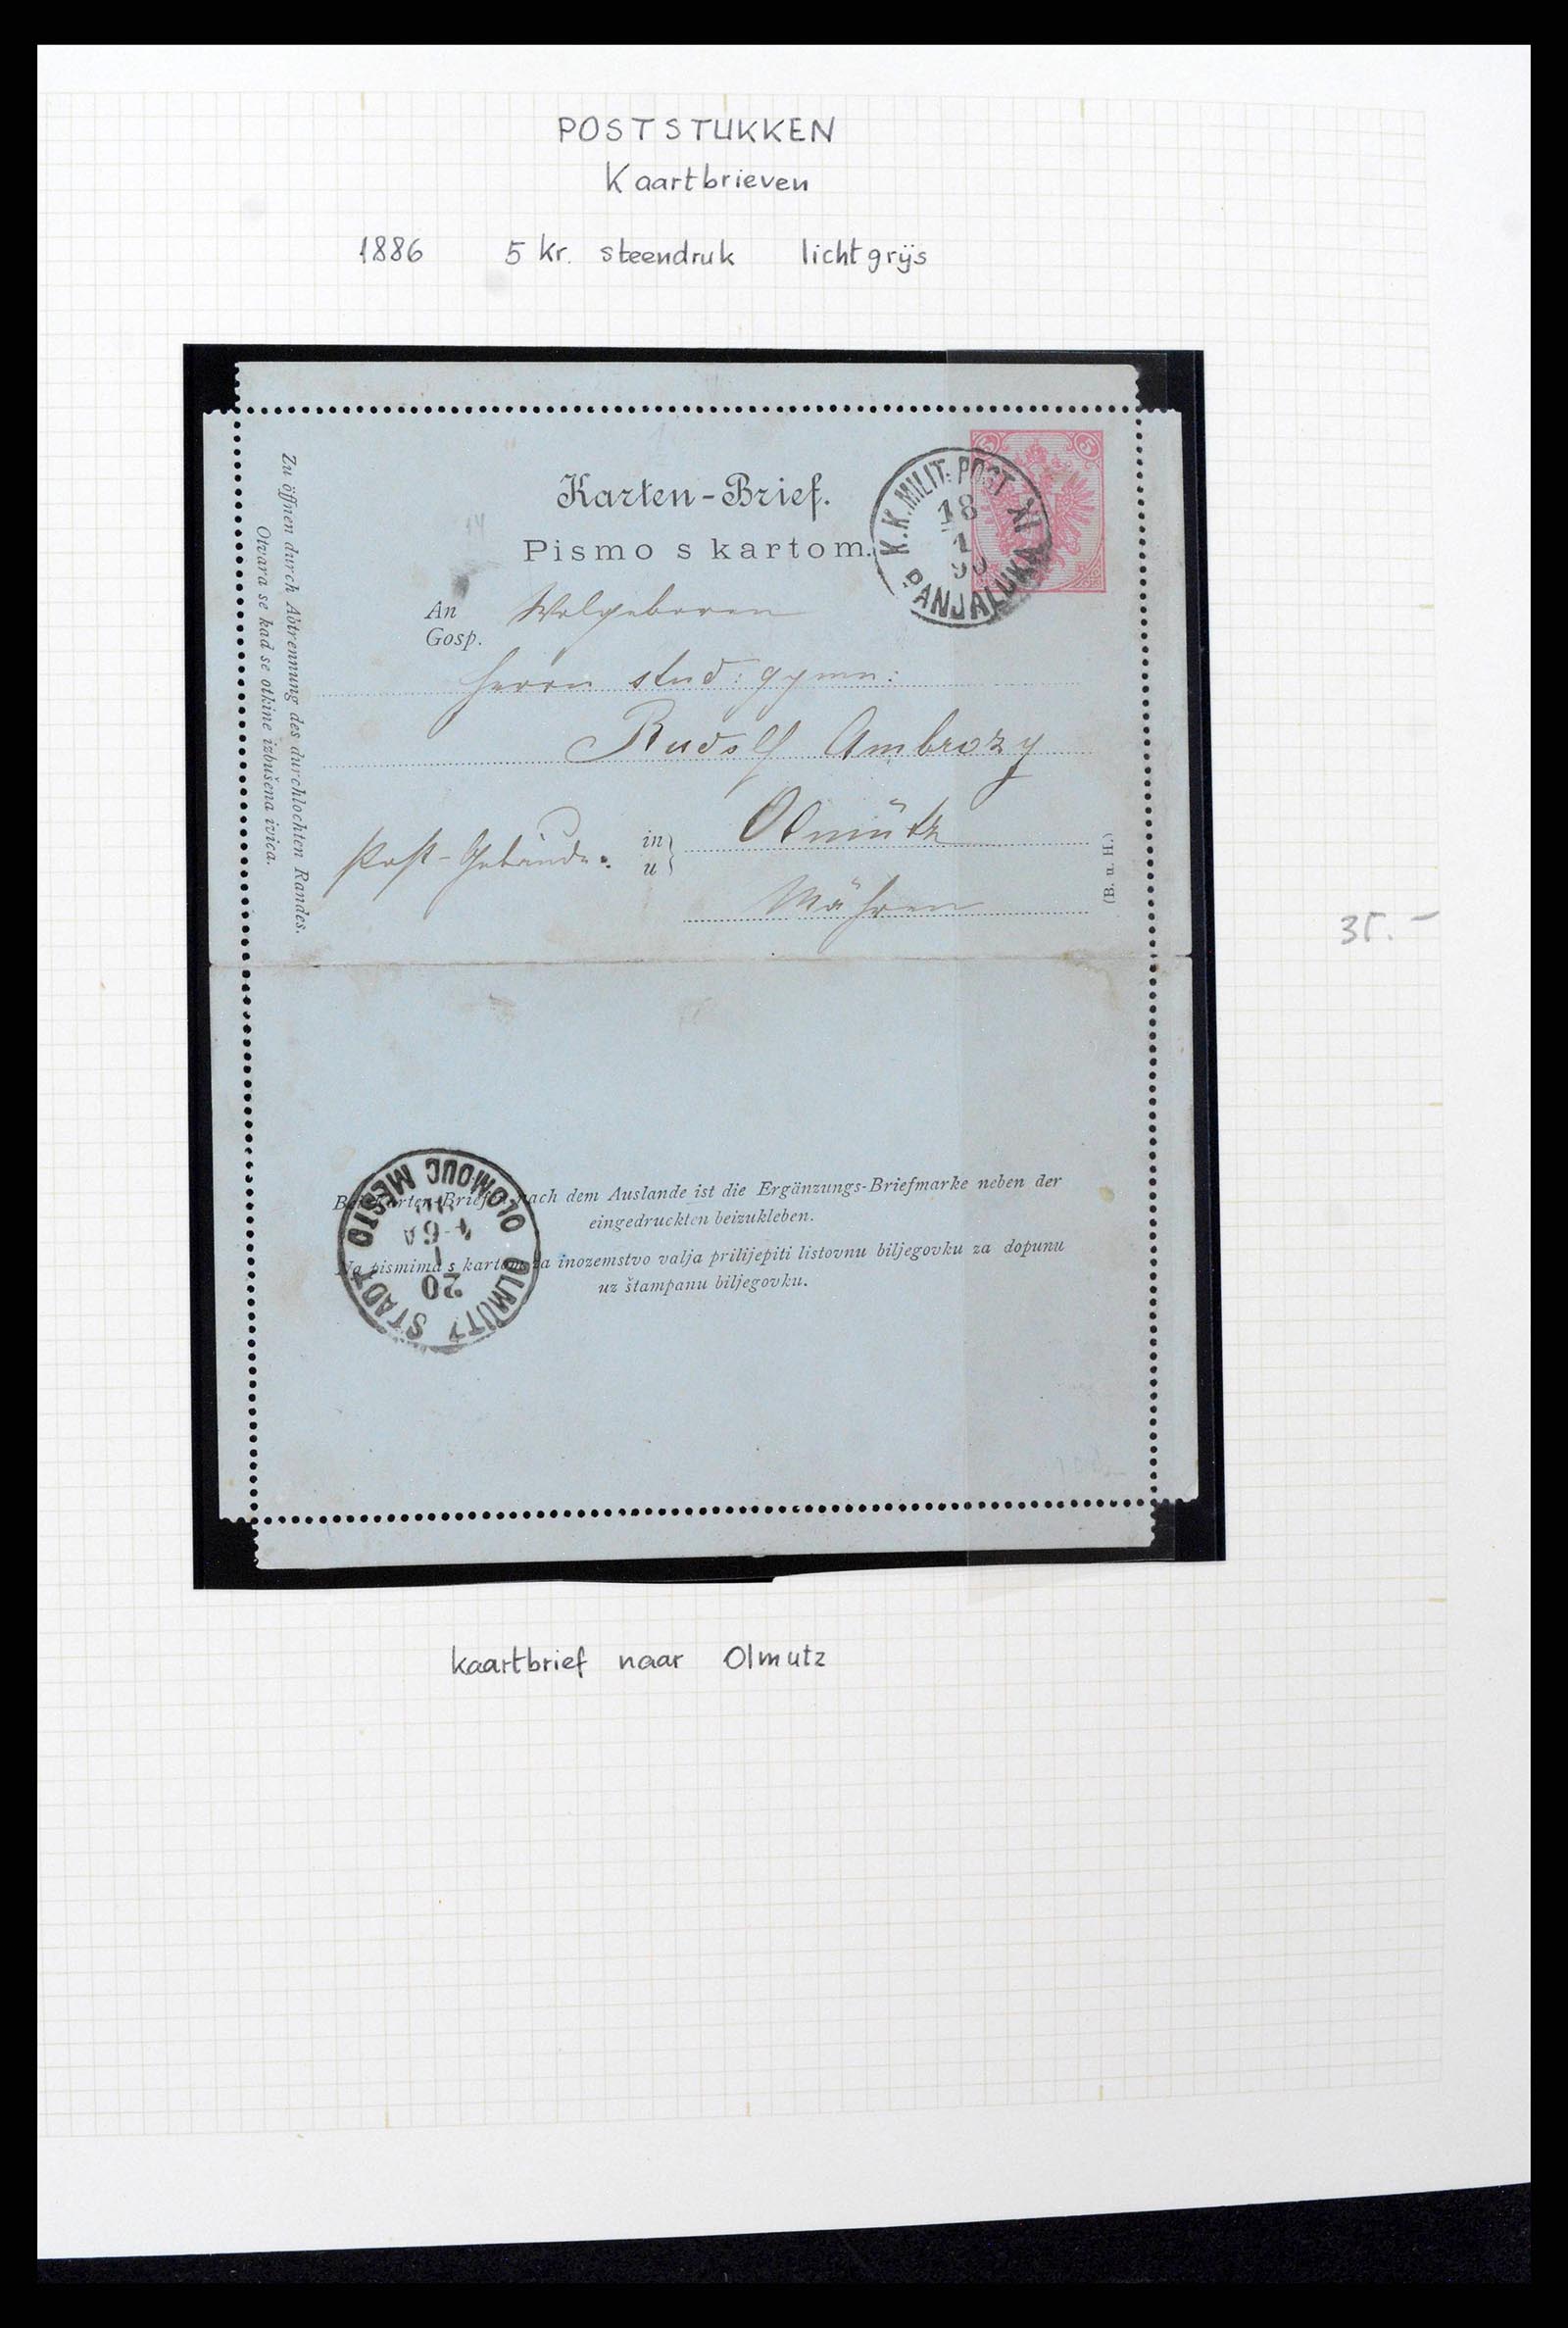 POSTSTUKKEN
Kaartbrieven
1886 5 kr. steendruk lichtgrijs
5 5
K.K. MILIT: POST XI
18
1
BANJALUKA
Karten-Brief.
Pismo s kartom.
Zu öffnen durch Abtrennung des durchlochten Randes.
Otvara se kad se otkine izbušena ivica.
An Wolgeboren
Gosp.
Herrn stud: gymn:
Rudolf Ambrozy
in Olmütz
Post-Gebäude. u
Mähren
(B. u. H.)
35.-
OLMÜTZ STADT
20
1
OLOMOUC MĚSTO
Bei Karten-Briefen nach dem Auslande ist die Ergänzungs-Briefmarke neben der
eingedruckten beizukleben.
Na pismima s kartom za inozemstvo valja prilijepiti listovnu biljegovku za dopunu
uz štampanu biljegovku.
kaartbrief naar Olmutz